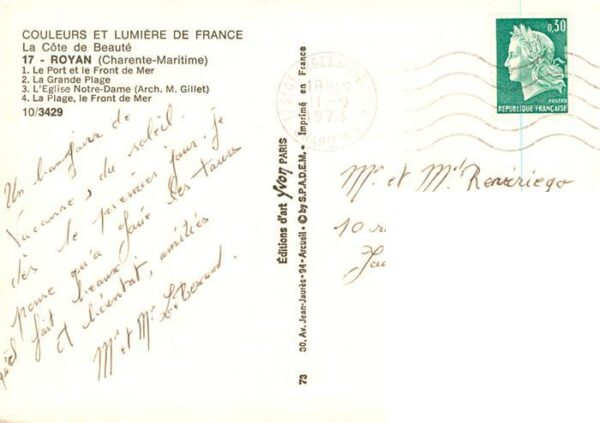 COULEURS ET LUMIÈRE DE FRANCE
La Côte de Beauté
17 - ROYAN (Charente-Maritime)
1. Le Port et le Front de Mer
2. La Grande Plage
3. L'Eglise Notre-Dame (Arch. M. Gillet)
4. La Plage, le Front de Mer
10/3429
Un bonjour de
Vacances, du soleil
dès le premier jour. je
pense qu'à faire des tours
fait beau
et bientôt, amitiés
Mr et Me
73
30, Av. Jean-Jaurès - 94 - Arcueil - © by S.P.A.D.E.M. - Imprimé en France
Éditions d'art Yvon PARIS
18H
11-9
1973
0,30
POSTES
REPUBLIQUE FRANÇAISE
Mr et Me
10